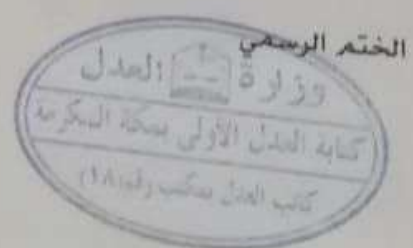 الختم الرسمي
وزارة العدل
كتابة العدل الأولى بمكة المكرمة
كاتب العدل بمكتب رقم (١٨)